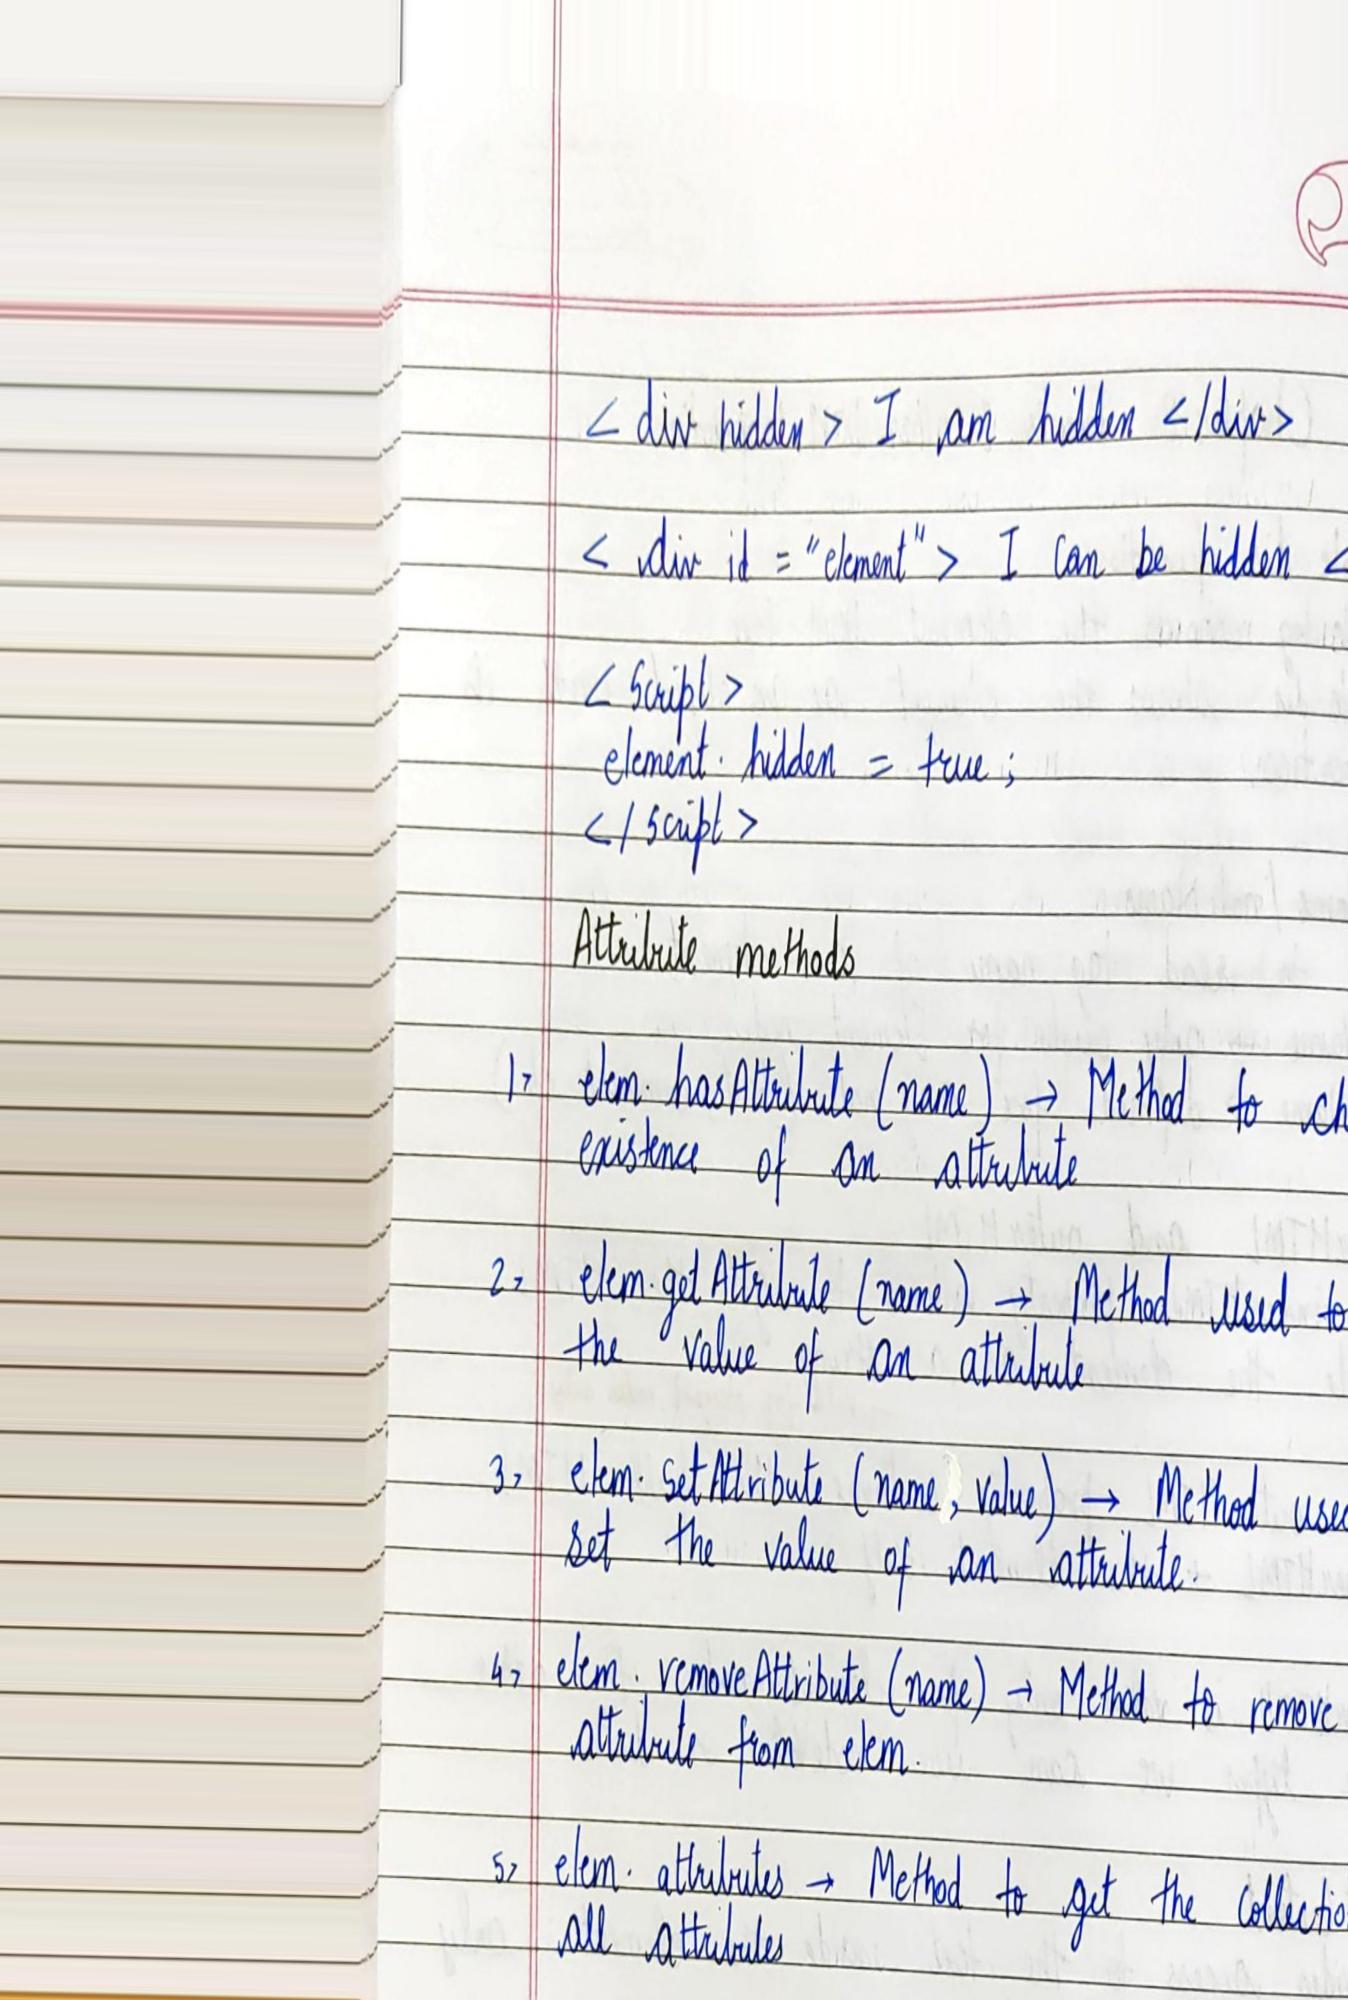 < div hidden > I am hidden </div>
< div id = "element" > I can be hidden <
< Script >
element. hidden = true ;
</ Script >
Attribute methods
1> elem. hasAttribute (name) → Method to ch
existence of an attribute
2> elem. getAttribute (name) → Method used to
the value of an attribute
3> elem. setAttribute (name, value) → Method used
set the value of an attribute.
4> elem. removeAttribute (name) → Method to remove
attribute from elem.
5> elem. attributes → Method to get the collectio
all attributes